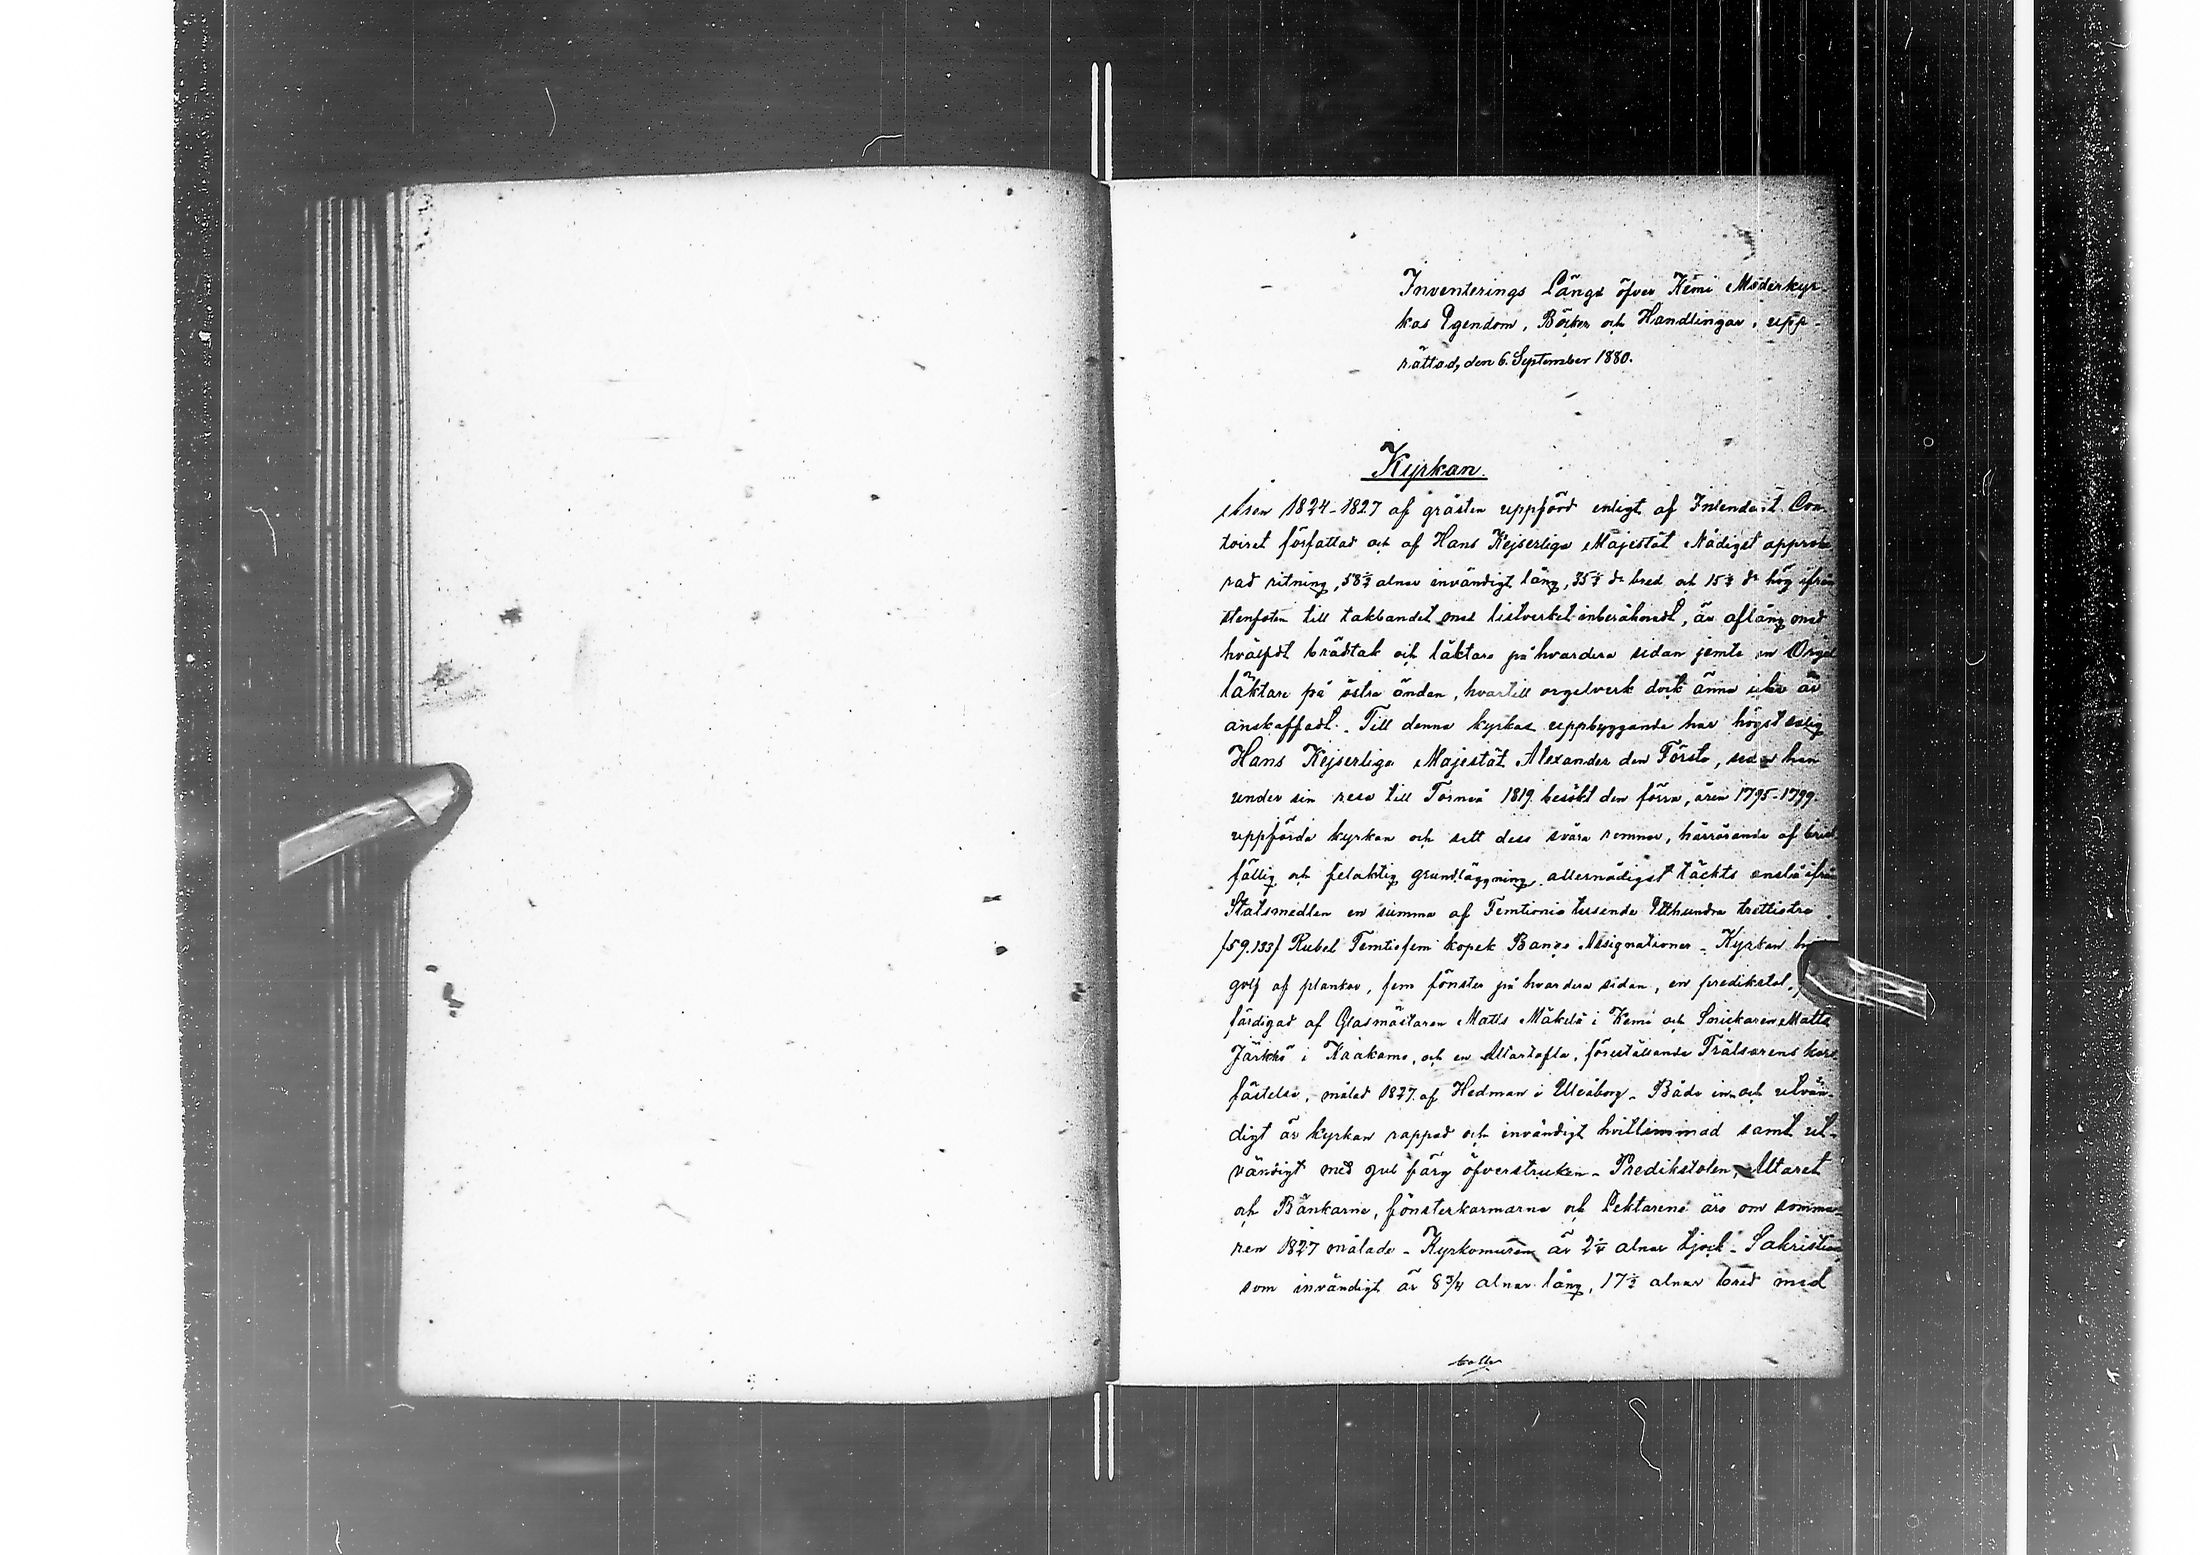 Inventerings Längd öfver Kemi Moderkyr-
kas Egendom, Böcker och Handlingar, upp-
rättad, den 6. September 1880.
Kyrkan.
Åren 1824-1827 af gråsten uppförd enligt af Intendent Con-
toiret författad och af Hans Kejserliga Majestät Nådigst approbe-
rad ritning, 58½ alnar invändigt lång, 35½ do bred och 15½ do hög ifrån
stenfoten till takbandet med listverket inberäknadt, är aflång med
hvälfdt brädtak och läktare på hvardera sidan jemte en Orgel
läktare på östra ändan, hvartill orgelverk dock ännu icke är
anskaffadt. Till denna kyrkas uppbyggande har högst salig
Hans Kejserliga Majestät Alexander den Förste, sedan han
under sin resa till Torneå 1819 besökt den förra, åren 1795-1799
uppförda kyrkan och sett dess svåra remnor, härrörande af bräck
fällig och felaktig grundläggning allernådigst täckts anslå ifrån
Statsmedlen en summa af Femtionio tusende Etthundra trettiotre
/59.133/ Rubel Femtiofem kopek Banco Assignationer - Kyrkan har
golf af plankor, fem fönster på hvardera sidan, en predikstol,
färdigad af Glasmästaren Matts Mäkelä i Kemi och Snickaren Matts
Järkkö i Kaakamo, och en Altartafla, föreställande Frälsarens kors
fästelse, målad 1827 af Hedman i Uleåborg - Både in- och utvän-
digt är kyrkan rappad och invändigt hvitlimmad samt ut-
vändigt med gul färg öfverstruken - Predikstolen, Altaret
och Bänkarne, fönsterkarmarna och Lektarena äro om somma-
ren 1827 målade - Kyrkomuren är 2½ alnar tjock - Sakristian
som invändigt är 8 3/4 alnar lång, 17½ alnar bred med